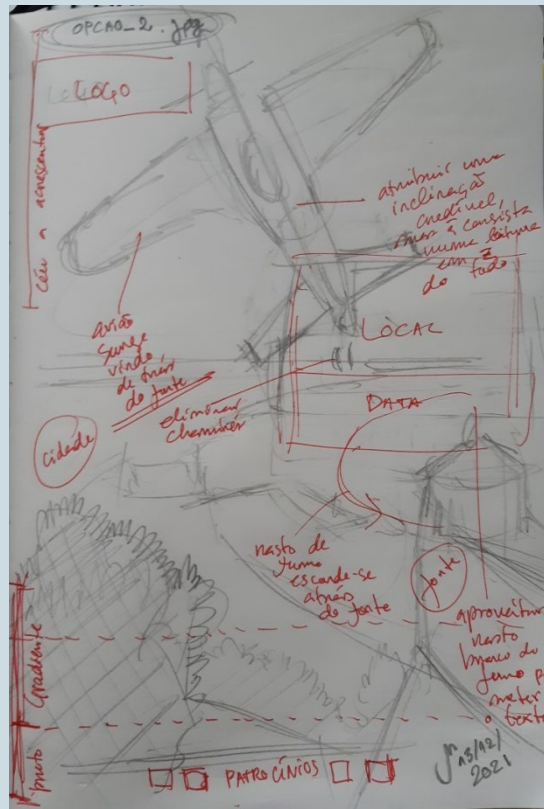 OPCAO_2.jpg
LOGO
céu a acrescentar
atribuir uma
inclinação
credível,
mas q consista
numa leitura
em Z
do todo
avião
surge
vindo
de trás
da fonte
LOCAL
eliminar
chaminés
DATA
cidade
rasto de
fumo
esconde-se
atrás
da fonte
fonte
aproveitar
rasto
branco do
fumo p
meter
o texto
Gradiente
preto
PATROCÍNIOS
13/12/
2021